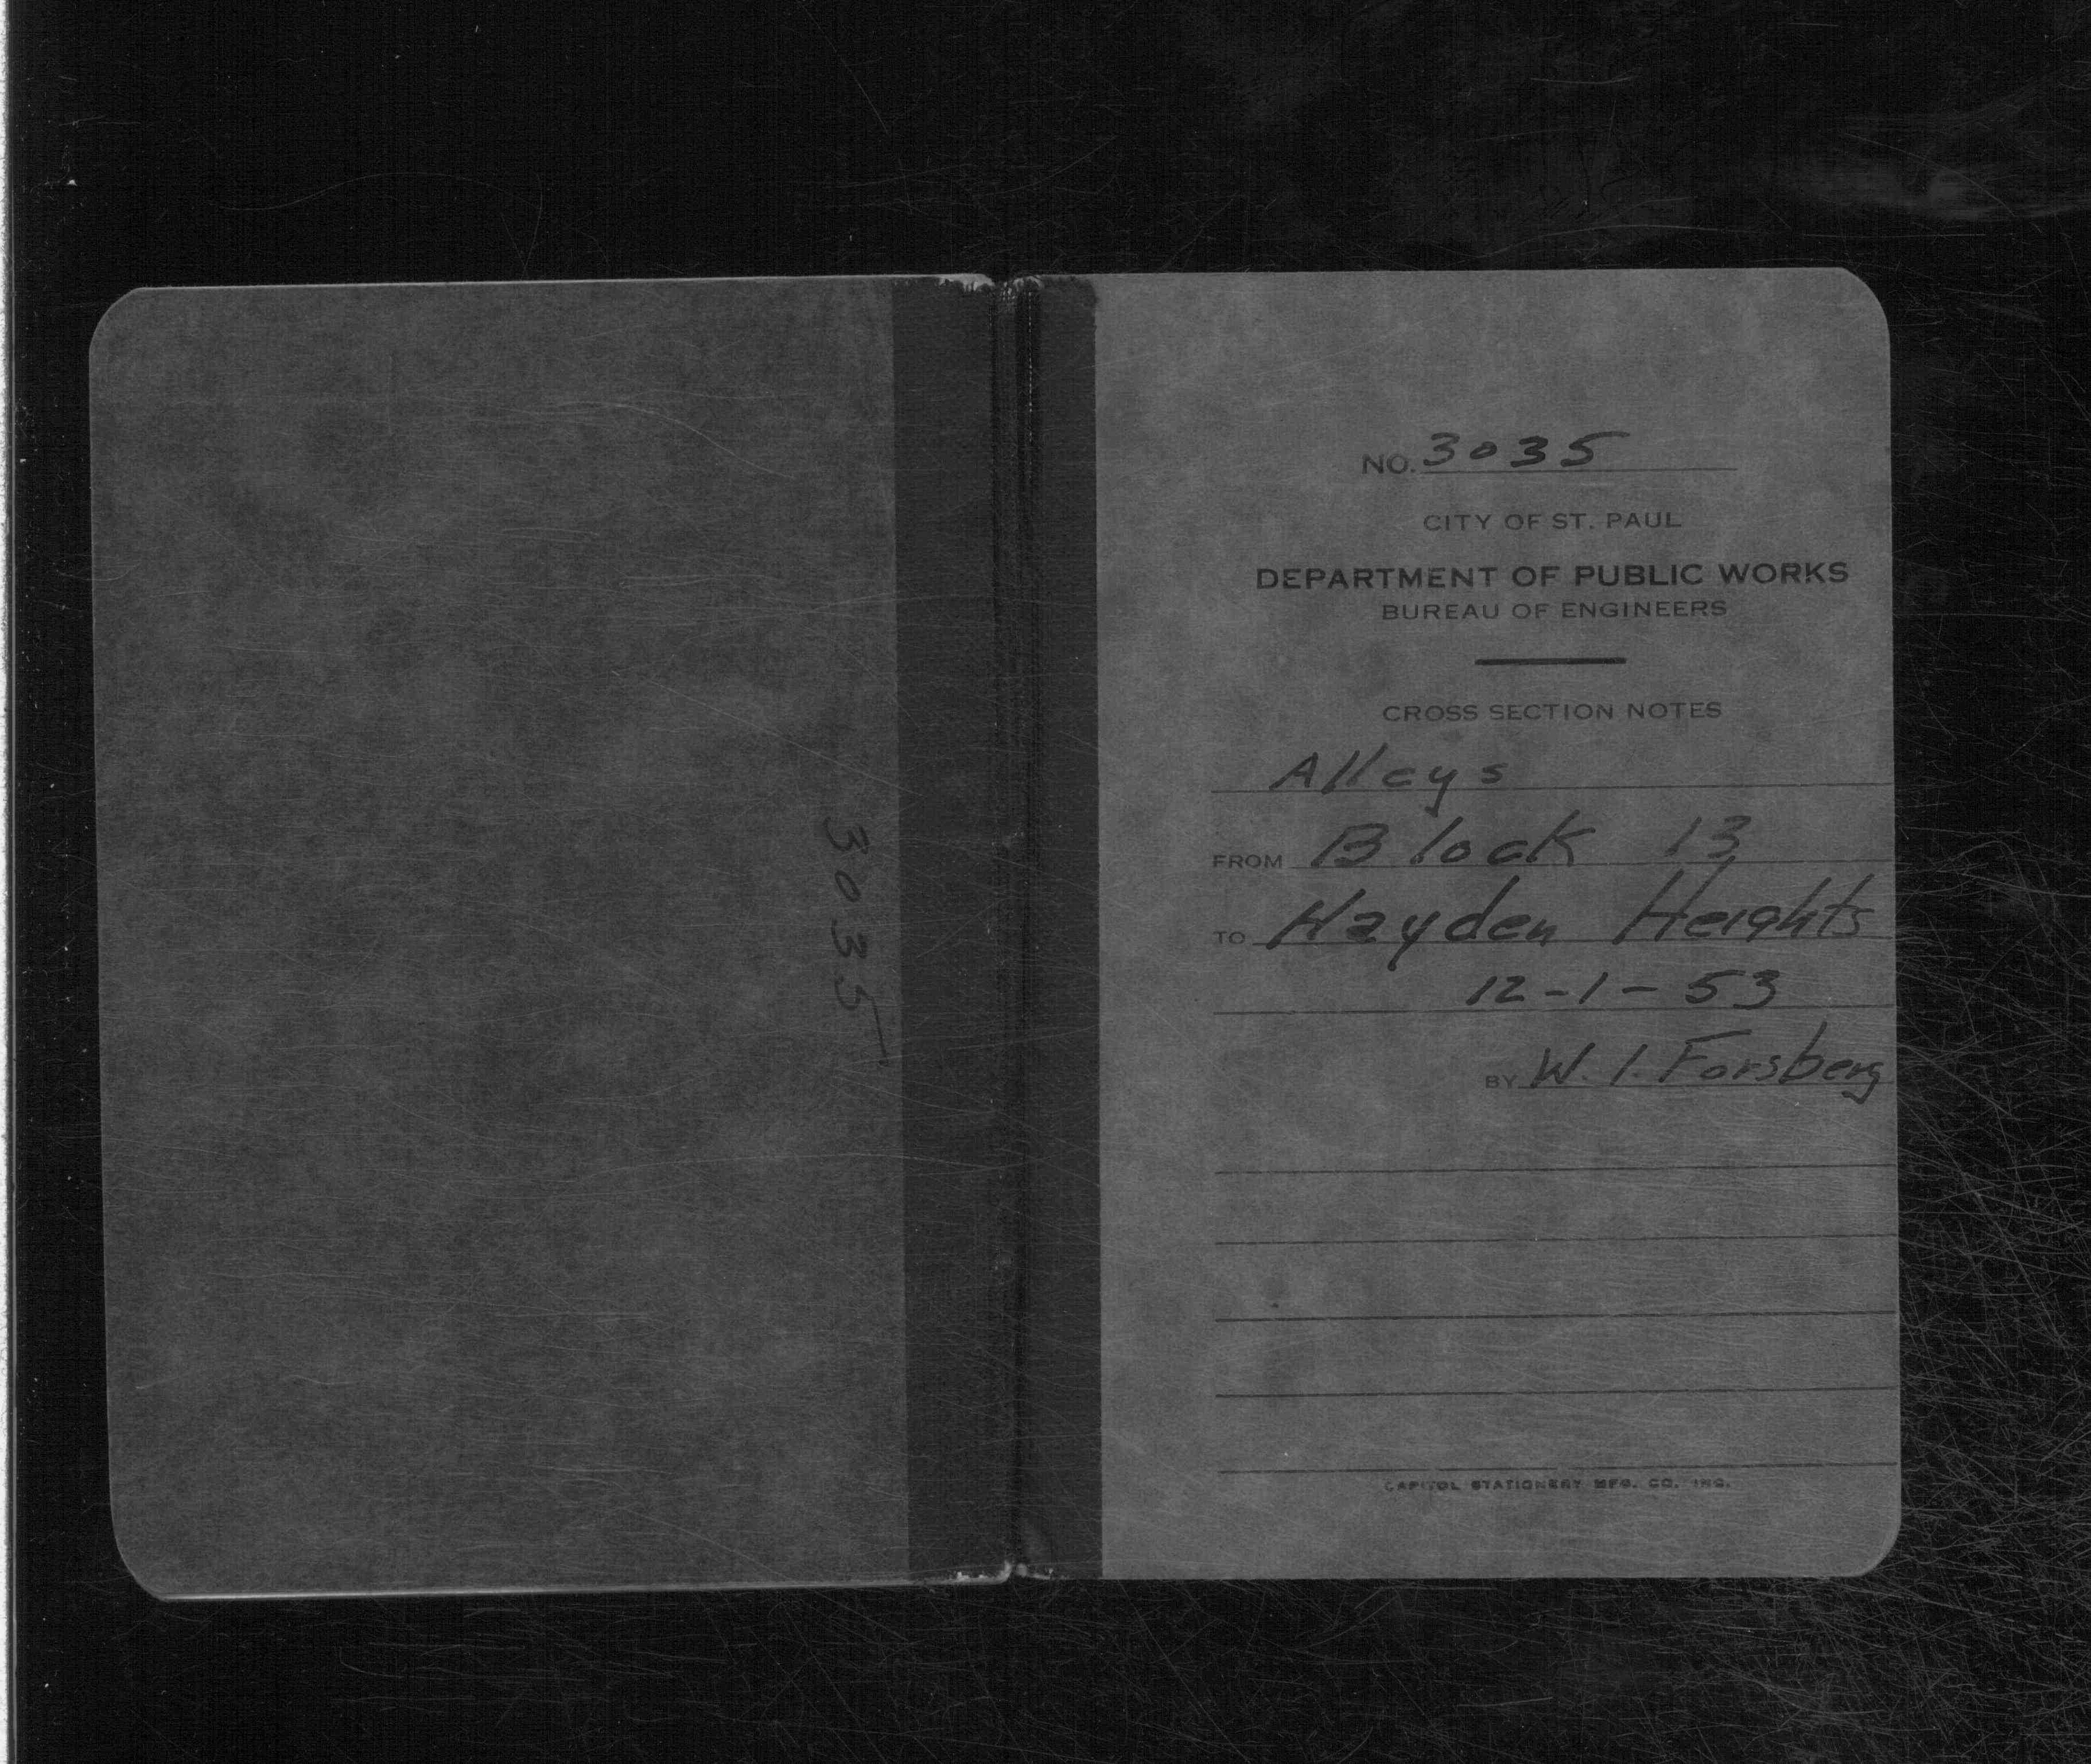 3035
NO. 3035
CITY OF ST. PAUL
DEPARTMENT OF PUBLIC WORKS
BUREAU OF ENGINEERS
CROSS SECTION NOTES
Alleys
FROM Block 13
TO Hayden Heights
12-1-53
BY W. I. Forsberg
CAPITOL STATIONERY MFG. CO. INC.